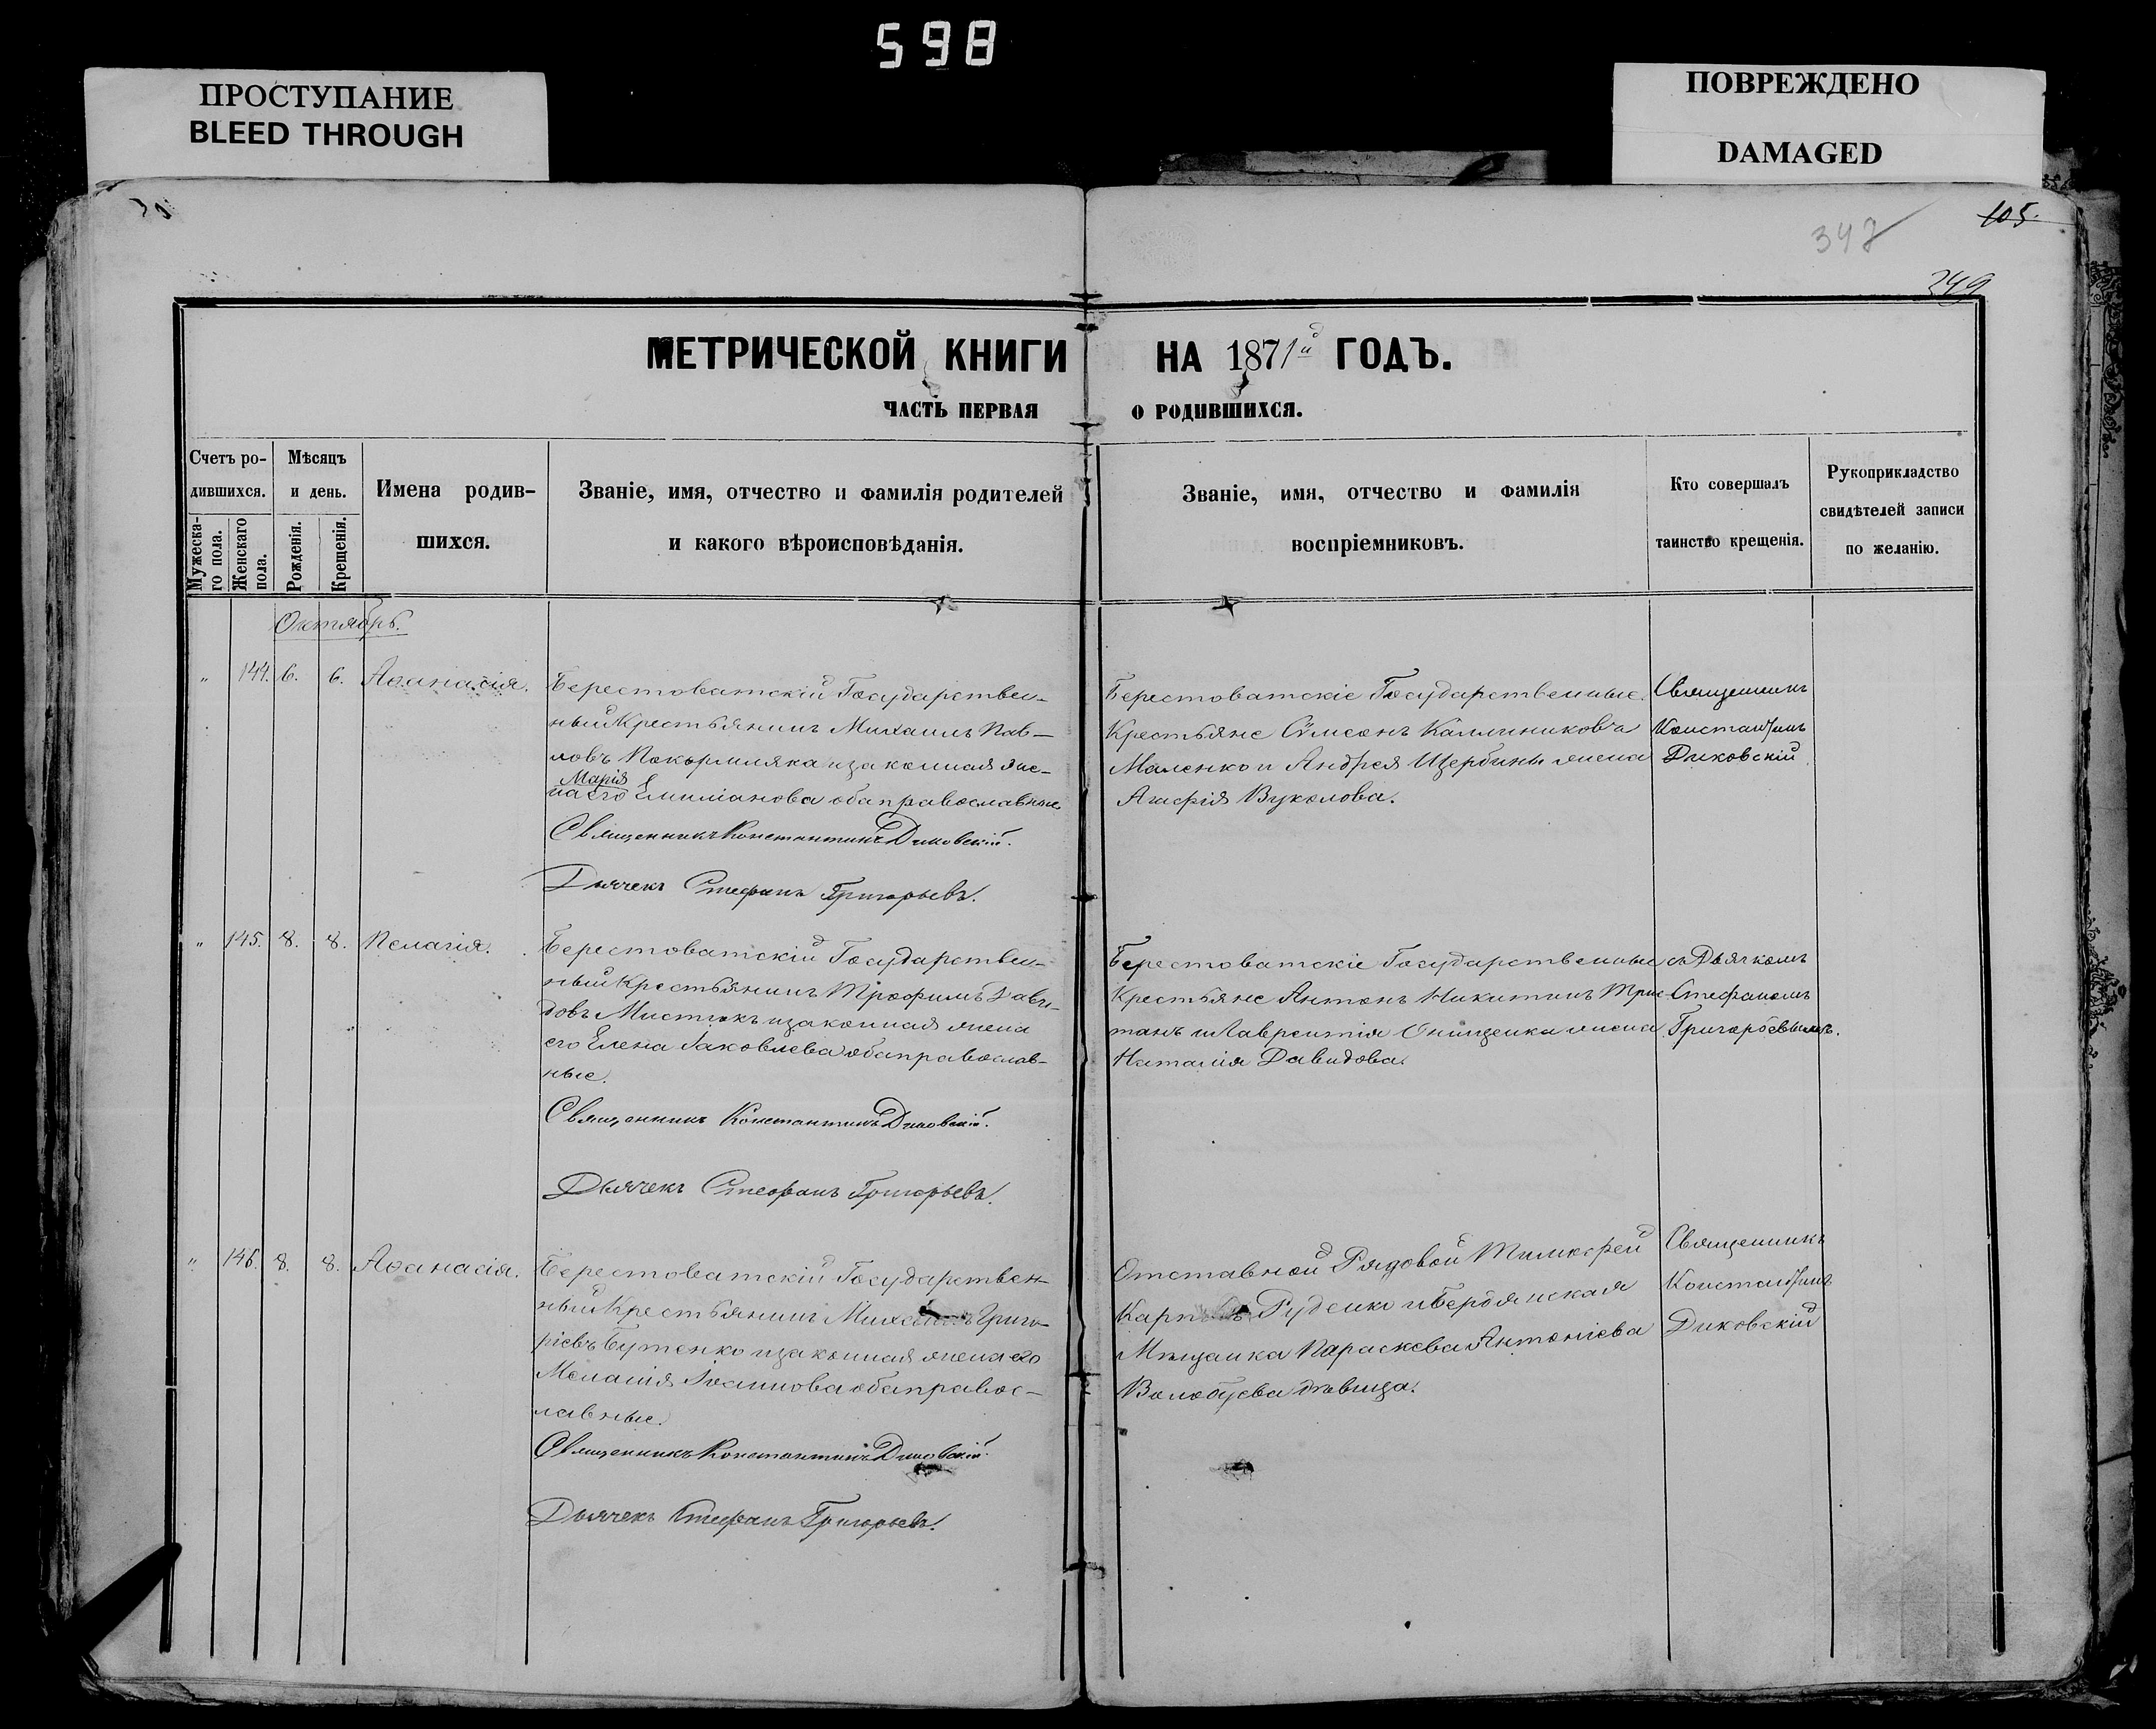 598
ПРОСТУПАНИЕ
BLEED THROUGH
ПОВРЕЖДЕНО
DAMAGED
105.
347
349
МЕТРИЧЕСКОЙ КНИГИ НА 1871й ГОДЪ.
ЧАСТЬ ПЕРВАЯ О РОДИВШИХСЯ.
Счетъ ро-
дившихся.
Мужеска-
го пола.
Женскаго
пола.
Мѣсяцъ
и день.
Рожденія.
Крещенія.
Имена родив-
шихся.
Званіе, имя, отчество и фамилія родителей
и какого вѣроисповѣданія.
Званіе, имя, отчество и фамилія
воспріемниковъ.
Кто совершалъ
таинство крещенія.
Рукоприкладство
свидѣтелей записи
по желанію.
Октябрь.
" 144. 6. 6. Аѳанасія.
Берестоватскій Государствен-
ный Крестьянинъ Михаилъ Пав-
ловъ Покормляка и законная же-
Марія
на его Емиліанова оба православные
Священникъ Константинъ Диковскій.
Дьячекъ Стефанъ Григорьевъ.
Берестоватскіе Государственные
Крестьяне Сѵмеонъ Калиниковъ
Маленко и Андрея Щербины жена
Агафія Вуколова.
Священникъ
Константинъ
Диковскій
" 145. 8. 8. Пелагія.
Берестоватскій Государствен-
ный Крестьянинъ Трофимъ Дави-
довъ Мистюкъ и законная жена
его Елена Іаковлева оба православ-
ные.
Священникъ Константинъ Диковскій.
Дьячекъ Стефанъ Григорьевъ.
Берестоватскіе Государственные
Крестьяне Антонъ Никитинъ Трис-
танъ и Лаврентія Онищенка жена
Наталія Давидова.
съ Дьячкомъ
Стефаномъ
Григорьевымъ.
" 146. 8. 8. Аѳанасія.
Берестоватскій Государствен-
ный Крестьянинъ Михаилъ Григо-
ріевъ Бутенко и законная жена его
Меланія Іоаннова оба правос-
лавные.
Священникъ Константинъ Диковскій.
Дьячекъ Стефанъ Григорьевъ.
Отставной Рядовой Тимофей
Карповъ Руденко и Бердянская
Мѣщанка Параскева Антоніева
Волобуева дѣвица.
Священникъ
Константинъ
Диковскій